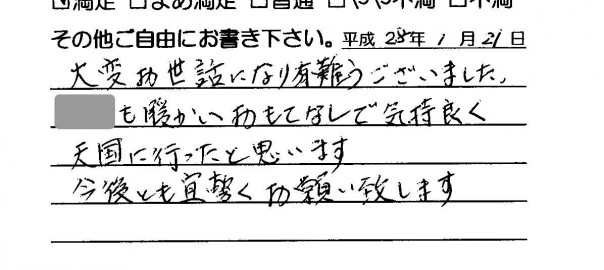 ☑満足 □まあ満足 □普通 □やや不満 □不満
その他ご自由にお書き下さい。平成28年1月21日
大変お世話になり有難うございました。
も暖かいおもてなしで気持良く
天国に行ったと思います
今後とも宜勢くお願い致します